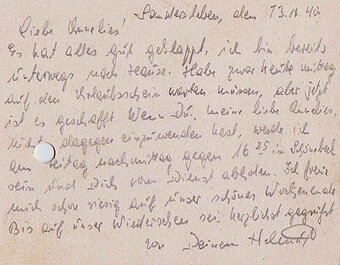 Sandersleben, den 13.11.40
Liebe Annelies!
Es hat alles gut geklappt, ich bin bereits
unterwegs nach Hause. Habe zwar heute mittag
auf den Urlaubsschein warten müssen, aber jetzt
ist es geschafft. Wenn Du, meine liebe Annelies,
nichts dagegen einzuwenden hast, werde ich
am Freitag nachmittag gegen 16 25 in Schönebeck
sein und Dich vom Dienst abholen. Ich freue
mich schon riesig auf unser schönes Wochenende
Bis auf unser Wiedersehen sei herzlichst gegrüßt
von Deinem Helmut